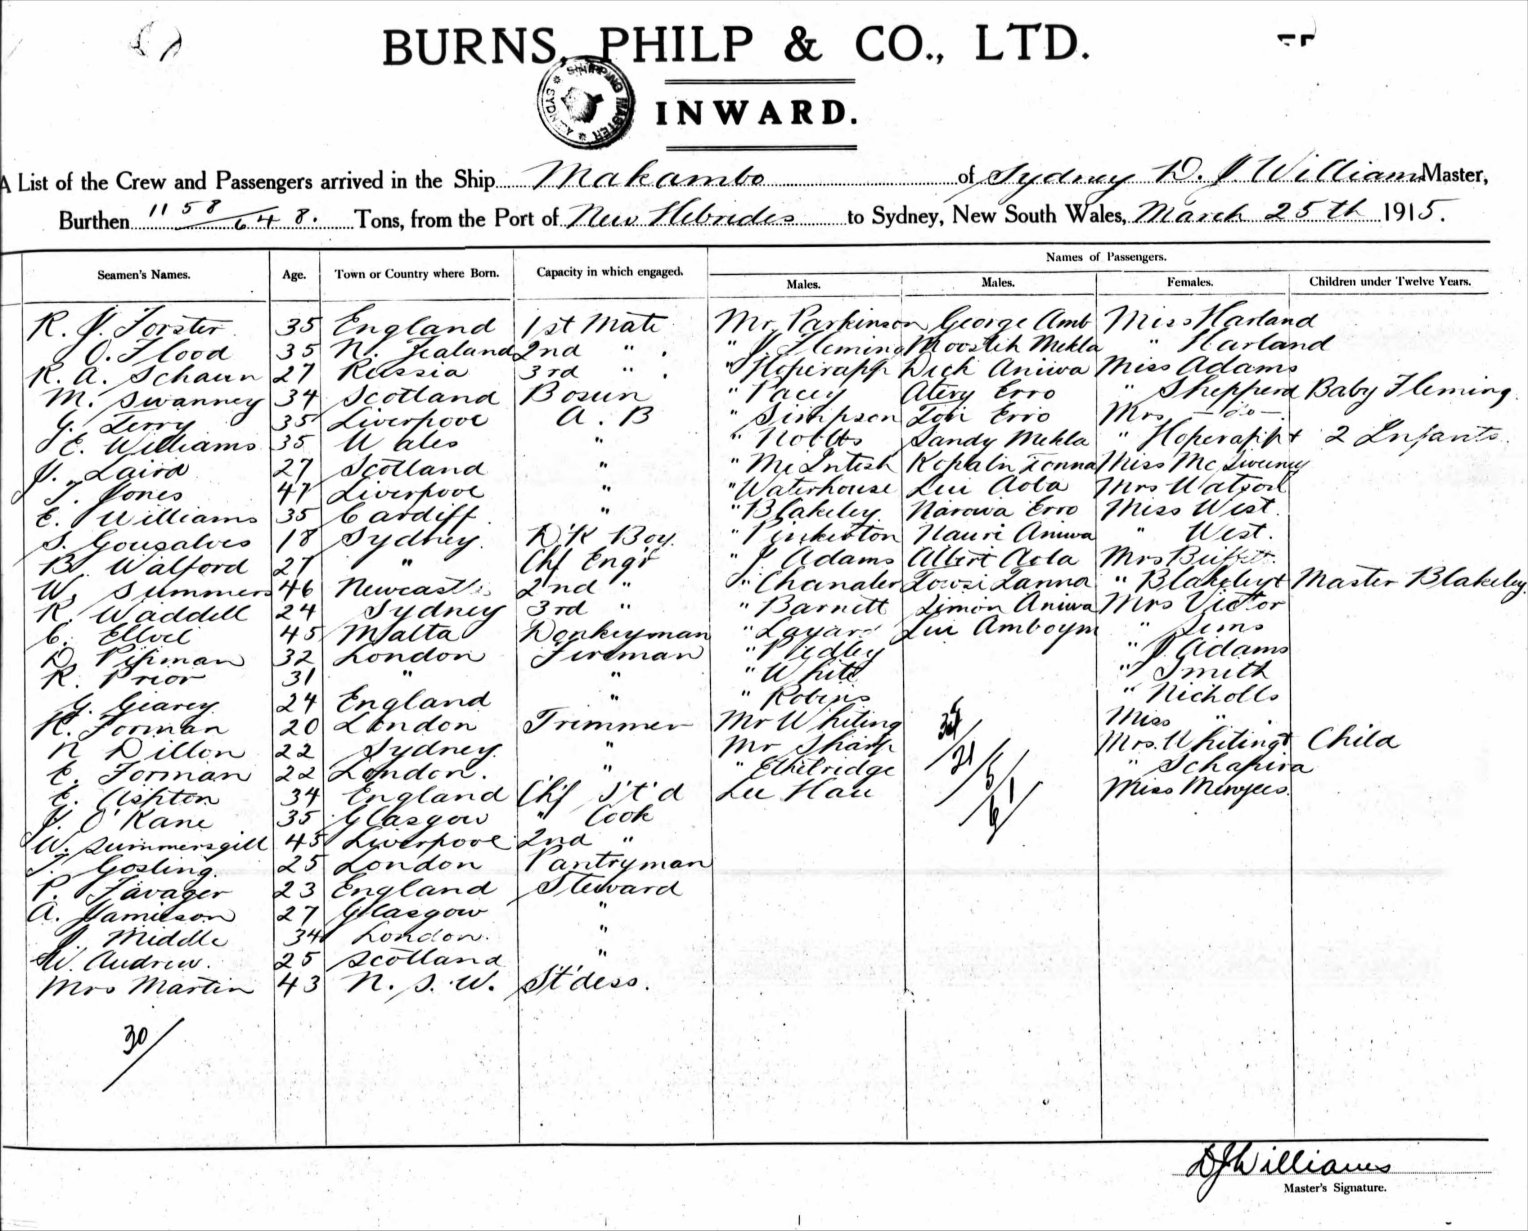 BURNS, PHILP & CO., LTD.
SHIPPING MASTER * SYDNEY *
INWARD.
A List of the Crew and Passengers arrived in the Ship Makambo of Sydney D. J Williams Master,
Burthen 1158/648. Tons, from the Port of New Hebrides to Sydney, New South Wales, March 25th 1915.
Names of Passengers.
Seamen's Names. Age. Town or Country where Born. Capacity in which engaged. Males. Males. Females. Children under Twelve Years.
R. J. Forster 35 England 1st Mate Mr Parkinson George Amb Miss Harland
O. Flood 35 N. Zealand 2nd " . " J. Fleming Mekla " Harland
R. A. Schaun 27 Russia 3rd " . " Dick Aniwa Miss Adams
M. Swanney 34 Scotland Bosun " Pacey Atery Erro " Shepperd Baby Fleming.
G. Terry 35 Liverpool A. B " Simpson Erro Mrs -do-
E. Williams 35 Wales " " Nobbs Sandy Mekla " 2 Infants.
J. Laird 27 Scotland " " McIntish Tonna Miss McSweeney
T. Jones 47 Liverpool " " Waterhouse Lui Aoba Mrs Watson
E. Williams 35 Cardiff. " " Blakeley Narowa Erro Miss West.
S. Gonsalves 18 Sydney. D'K Boy. " Pinkerton Nauri Aniwa " West.
B. Walford 27 " Chf Eng'r " J. Adams Albert Aola Mrs
W. Summers 46 Newcastle 2nd " " Chandler Towsi Tanna " Blakeley & Master Blakeley.
R. Waddell 24 Sydney 3rd " " Barnett Simon Aniwa Mrs Victor
C. Ellul 45 Malta Donkeyman " Layard Lui Amboym " Sims
D. Pipman 32 London Fireman " Pedley " J. Adams
R. Prior 31 " " " White " Smith
G. Gearey 24 England " " Robins " Nicholls
H. Forman 20 London Trimmer Mr Whiting Miss " .
N Dillon 22 Sydney " Mr Sharp Mrs. Whiting & Child
E. Forman 22 London. " " Etheridge " Schapira
E. Ashton 34 England Ch'f S't'd Lee Hau Miss Menzies.
J. O'Kane 35 Glasgow " Cook
W. Summersgill 45 Liverpool 2nd "
T. Gosling. 25 London Pantryman
P. Favager 23 England Steward
A. Jamieson 27 Glasgow "
J. Middle 34 London. "
W. Andrew. 25 Scotland "
Mrs Martin 43 N. S. W. St'dess.
34/
21/
6/
61/
30/
DJWilliams
Master's Signature.